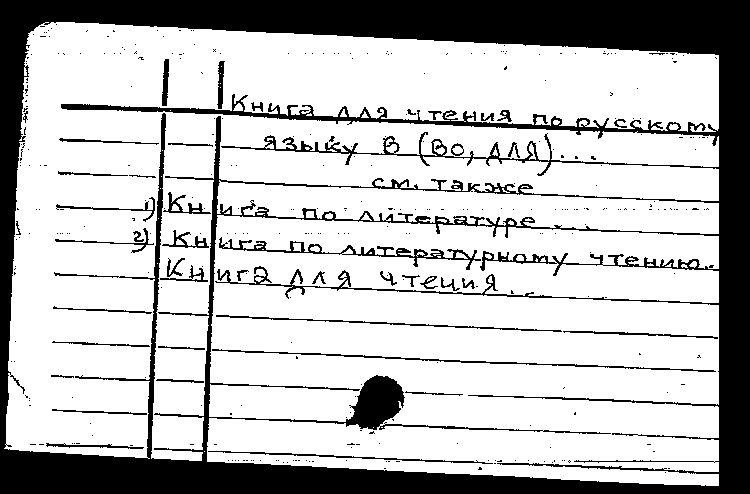 Книга для чтения по русскому
языку в (во, для)...
см. также
1) Книга по литературе...
2) Книга по литературному чтению..
Книга для чтения...